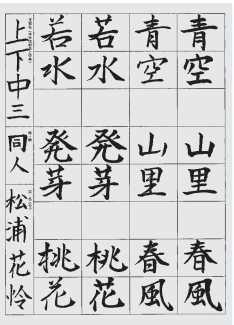 青空
山里
春風
青空
山里
春風
若水
発芽
桃花
若水
発芽
桃花
上一下中三
同人
松浦花怜